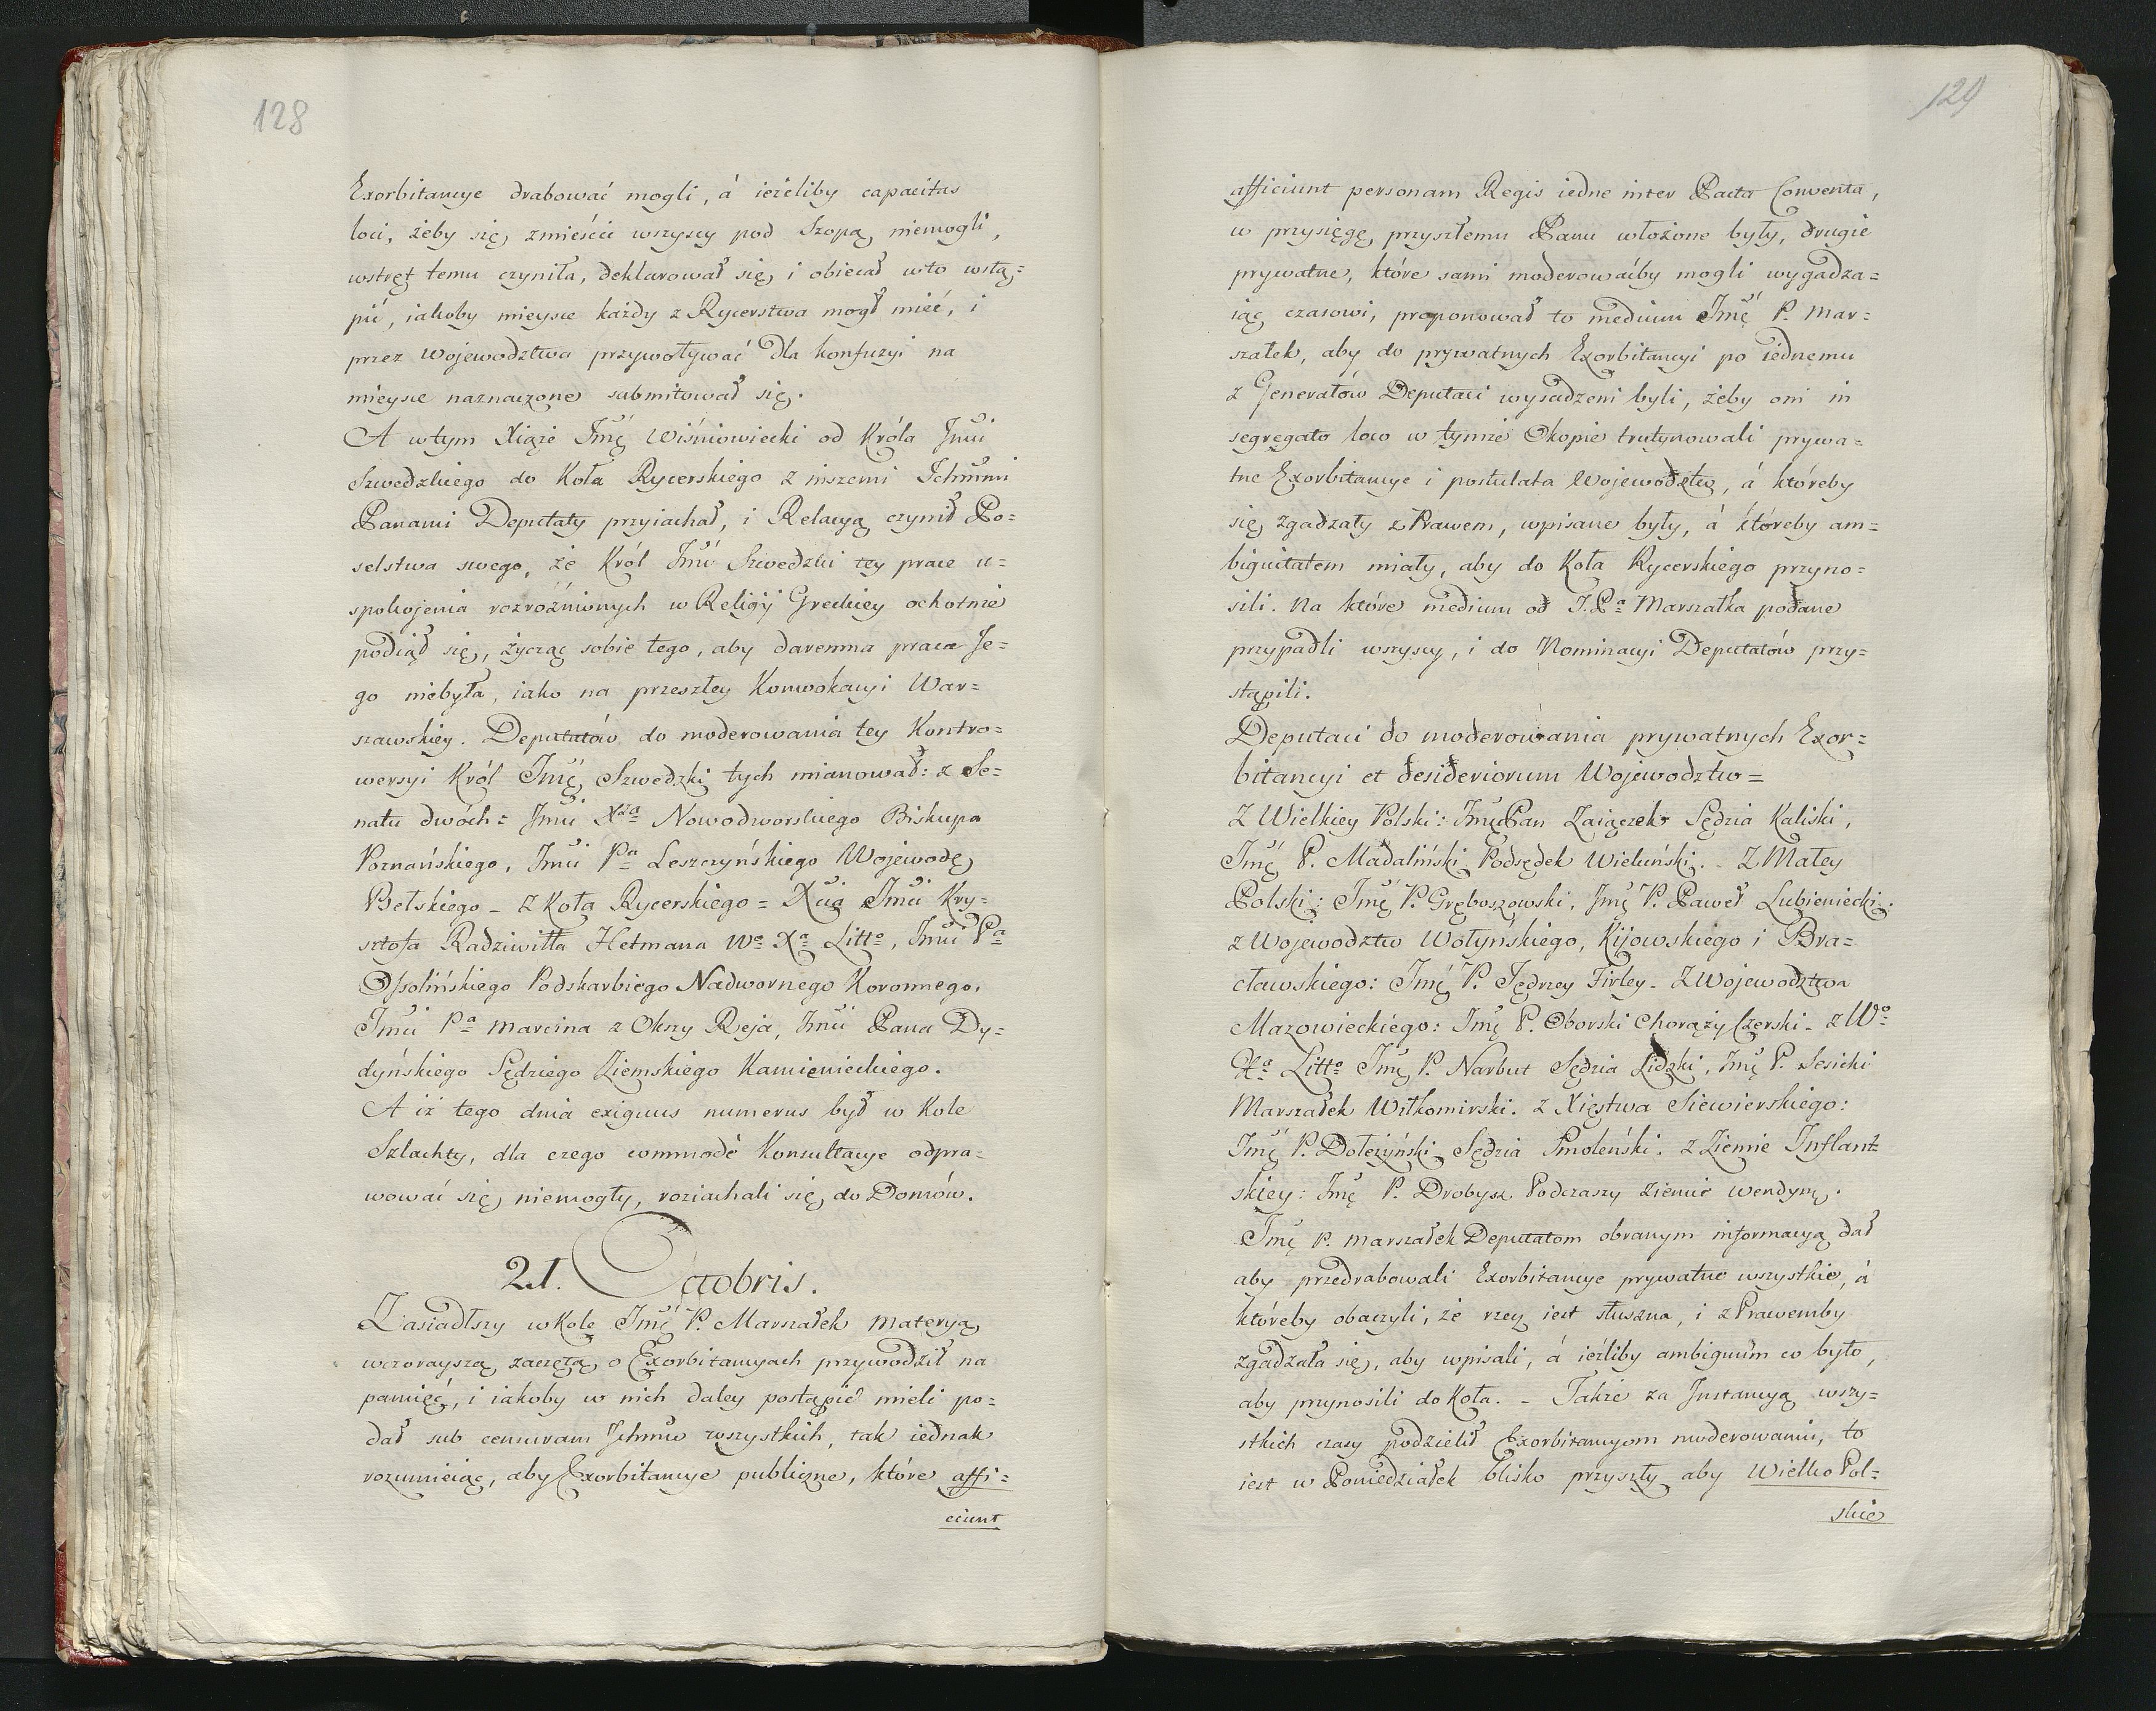 128
Exorbitancye drabować mogli, á ieżeliby capacitas
loci, żeby się zmieścić wszyscy pod Szopą niemogli,
wstręt temu czyniła, deklarował się i obiecał wto wstą=
pić, iakoby mieysce każdy z Rycerstwa mogł mieć, i
przez Wojewodztwa przywoływać dla konfuzyi na
mieysce naznaczone submitował się.
A wtym Xiąże Jmć Wiśniowiecki od Króla Jmci
Szwedzkiego do Koła Rycerskiego z inszemi Ichmmi
Panami Deputaty przyiachał, i Relacyą czynił Po=
selstwa swego, że Król Jmć Szwedzki tey prace u=
spokojenia rozróźnionych w Religij Greckiey ochotnie
podiął się, życząc sobie tego, aby daremna praca Je=
go niebyła, iako na przeszłey Konwokacyi War=
szawskiey. Deputatów do moderowania tey Kontro=
wersyi Król Jmć Szwedzki tych mianował: z Se=
natu dwóch= Jmci Xza Nowodworskiego Biskupa
Poznańskiego, Jmci Pa Leszczyńskiego Wojewodę
Bełskiego - z Koła Rycerskiego = Xcia Jmci Kry=
sztofa Radziwiłła Hetmana Wo Xa Litto, Jmci Pa
Ossolińskiego Podskarbiego Nadwornego Koronnego,
Jmci Pa Marcina z Okszy Reja, Jmci Pana Dy=
dyńskiego Sędziego Ziemskiego Kamienieckiego.
A iż tego dnia exiguus numerus był w Kole
Szlachty, dla czego commodè Konsultacye odpra=
wować się niemogły, roziachali się do Domów.
21. Octobris.
Zasiadłszy w Kole Jmć P. Marszałek materyą
wczorayszą zaczętą o Exorbitancyach przywodził na
pamięć, i iakoby w nich daley postąpić mieli po=
dał sub censuram Ichmciów wszystkich, tak iednak
rozumieiąc, aby Exorbitancye publiczne, które affi=
ciunt
129
afficiunt personam Regis iedne inter Pacta Conventa,
w przysięgę przyszłemu Panu włożone były, drugie
prywatne, które sami moderowaćby mogli wygadza=
iąc czasowi, proponował to medium Jmć P. Mar=
szałek, aby do prywatnych Exorbitancyi po iednemu
z Generałów Deputaci wysadzeni byli, żeby oni in
segregato loco w tymże Okopie trutynowali prywa=
tne Exorbitancye i postulata Wojewodztw, á któreby
się zgadzały z Prawem, wpisane były, á któreby am=
biguitatem miały, aby do Koła Rycerskiego przyno=
sili. Na które medium od J. Pa Marszałka podane
przypadli wszyscy, i do Nominacyi Deputatów przy=
stąpili.
Deputaci do moderowania prywatnych Exor=
bitancyi et desideriorum Wojewodztw=
Z Wielkiey Polski: Jmć Pan Zaiączek Sędzia Kaliski,
Jmć P. Madaliński Podsędek Wieluński. - Z Małey
Polski: Jmć P. Gręboszowski, Jmć P. Paweł Lubieniecki.
z Wojewodztw Wołyńskiego, Kijowskiego i Bra=
cławskiego: Jmć P. Jędrzey Firley. Z Wojewodztwa
Mazowieckiego: Jmć P. Oborski Chorąży Czerski - z Wo
Xa Litto Jmć P. Narbut Sędzia Lidzki, Jmć P. Sesicki
Marszałek Wiłkomirski. z Xięstwa Siewierskiego:
Jmć P. Dołeżyński Sędzia Smoleński. z Ziemie Inflant=
skiey: Jmć P. Drobysz Podczaszy Ziemie wendyny.
Jmć P. Marszałek Deputatom obranym informacyą dał
aby przedrabowali Exorbitancye prywatne wszystkie, á
któreby obaczyli, że rzecz iest słuszna, i z Prawemby
zgadzała się, aby wpisali, á ieźliby ambiguum co było,
aby przynosili do Koła. - Także za Instancyą wszy=
stkich czasy podzielił Exorbitancyom moderowaniu, to
iest w Poniedziałek blisko przyszły aby WielkoPol=
skie